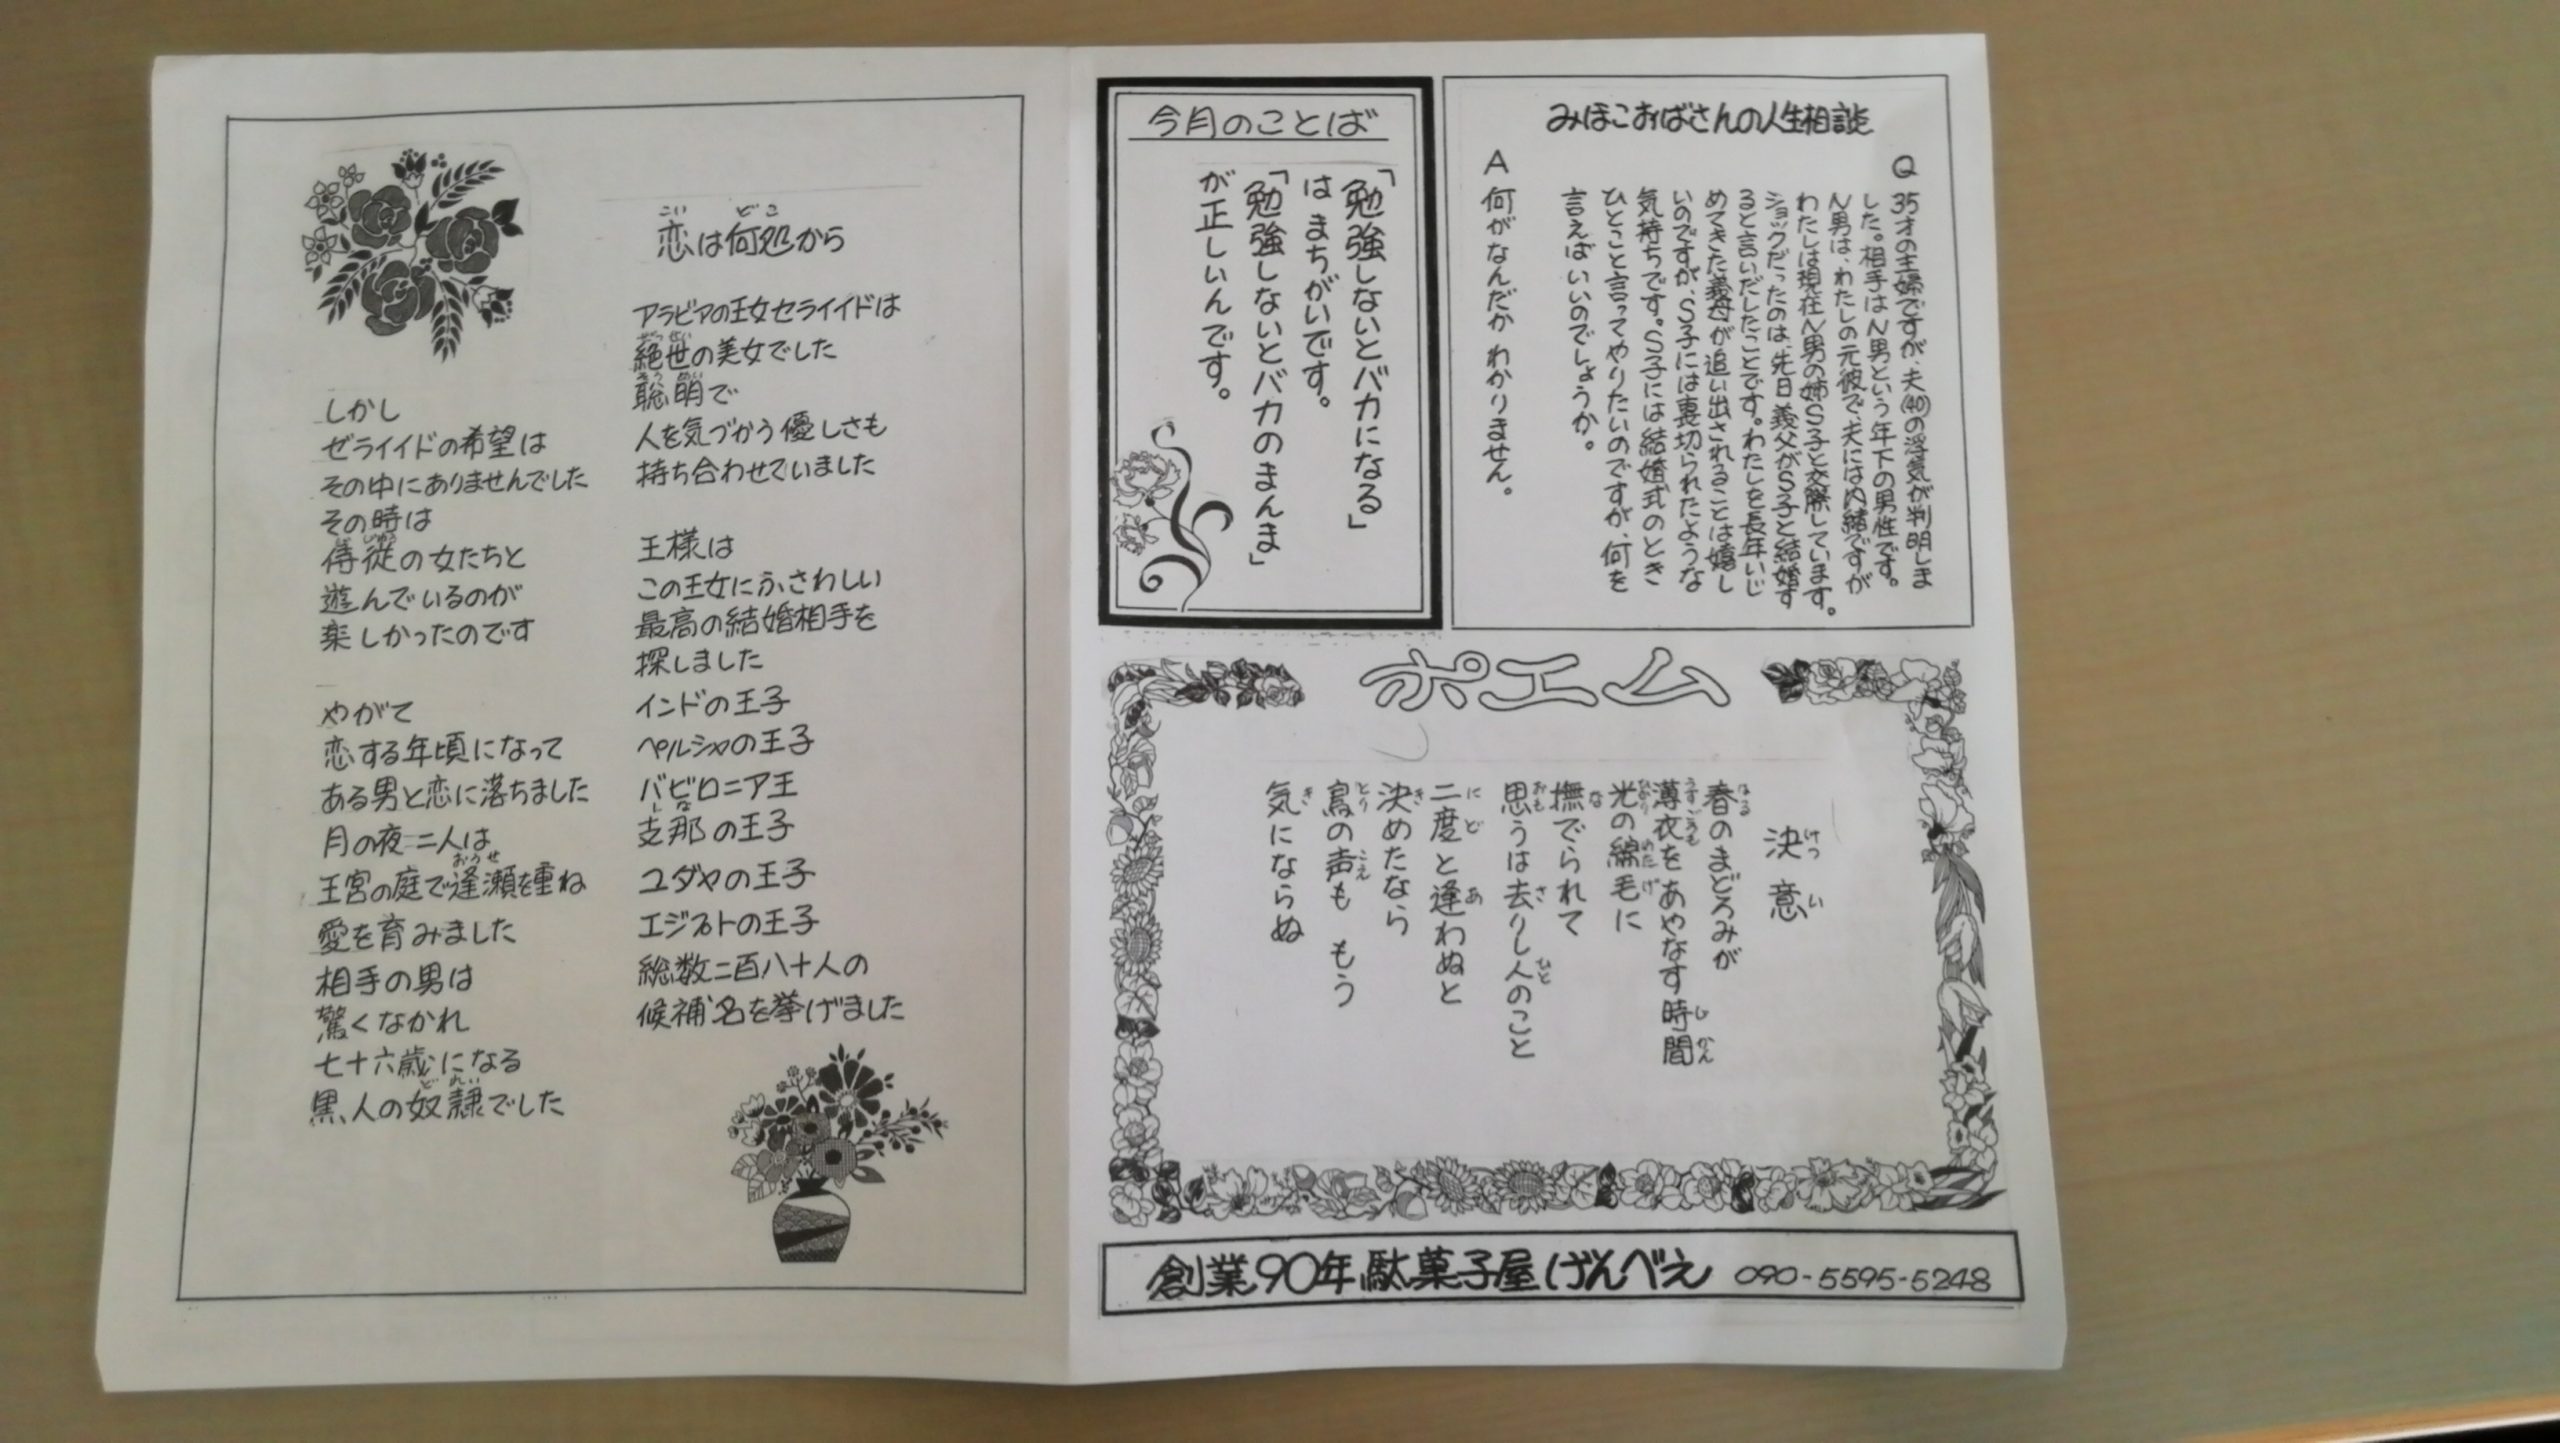 みほこおばさんの人生相談
Q
35才の主婦ですが、夫(40)の浮気が判明しま
した。相手はN男という年下の男性です。
N男は、わたしの元彼で、夫にはぬ結ですが
わたしは現在N男の姉S子と交際しています。
ショックだったのは、先日義父がS子と結婚す
ると言いだしたことです。わたしを長年いじ
めてきた義母が追い出されることは嬉し
いのですが、S子には裏切られたような
気持ちです。S子には結婚式のとき
ひとこと言ってやりたいのですが、何を
言えばいいのでしょうか。
A
何がなんだかわかりません。
今月のことば
「勉強しないとバカになる」
はまちがいです。
「勉強しないとバカのまんま」
が正しいんです。
ポエム
決意
けつい
春のまどろみが
はる
薄衣をあやなす時間
うすごろも じかん
光の綿毛に
ひかり わたげ
撫でられて
な
思うは去りし人のこと
おも さ ひと
二度と逢わぬと
にど あ
決めたなら
き
鳥の声も もう
とり こえ
気にならぬ
き
創業90年駄菓子屋げんべえ 090-5595-5248
こい どこ
恋は何処から
アラビアの王女セライイドは
ぜっせい
絶世の美女でした
そう めい
聡明で
人を気づかう優しさも
持ち合わせていました
王様は
この王女にふさわしい
最高の結婚相手を
探しました
インドの王子
ペルシャの王子
バビロニア王
しな
支那の王子
ユダヤの王子
エジプトの王子
総数二百八十人の
候補名を挙げました
しかし
ゼライイドの希望は
その中にありませんでした
その時は
じじゅう
侍従の女たちと
遊んでいるのが
楽しかったのです
やがて
恋する年頃になって
ある男と恋に落ちました
月の夜二人は
おうせ
王宮の庭で逢瀬を重ね
愛を育みました
相手の男は
驚くなかれ
七十六歳になる
どれい
黒人の奴隷でした